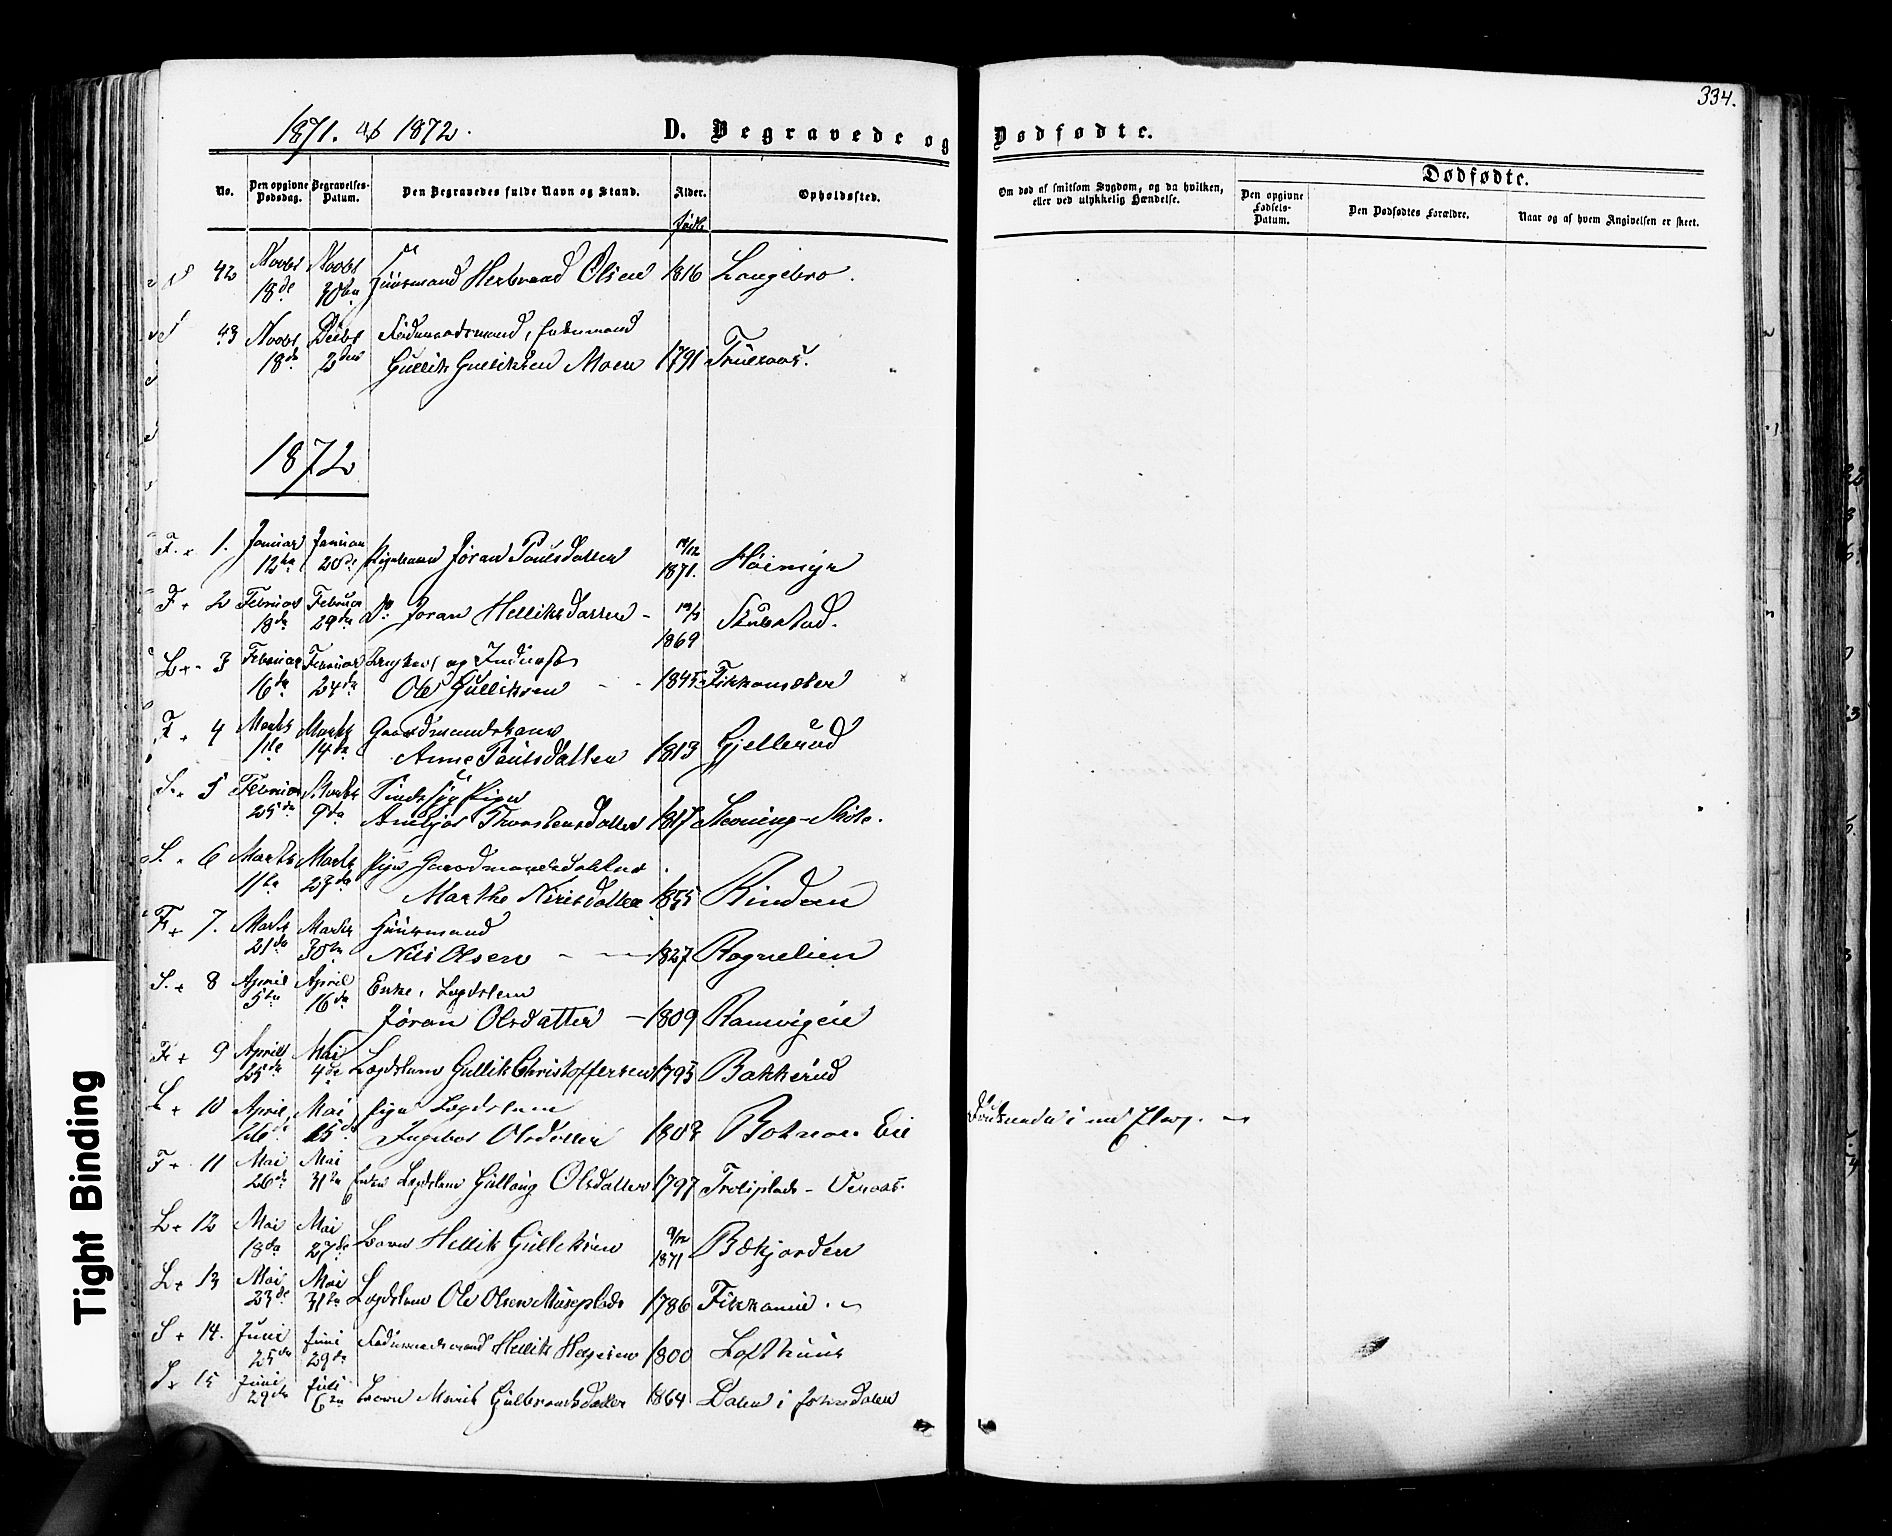 334.
1871. og 1872.
D. Begravede og Dødfødte.
No.
Den opgivne Dødsdag.
Begravelses-Datum.
Den Begravedes fulde Navn og Stand.
Alder.
født
Opholdssted.
Om død af smitsom Sygdom, og da hvilken, eller ved ulykkelig Hændelse.
Dødfødte.
Den opgivne Fødsels-Datum.
Den Dødfødtes Forældre.
Naar og af hvem Angivelsen er skeet.
42 Novbr 18de Novbr 30te Huusmand Herbrand Olsen 1816 Langebro.
43 Novbr 18de Decbr 2den
Gullik Gulliksen Moen 1791
1872
F. 1. Januar 12te Januar 20de Pigebarn Jøran Paulsdatter 1871. Høimyr
F. 2 Februar 18de Februar 29de Do Jøran Helliksdatter 1869
L. 3 Februar 16de Februar 24de
Ole Gulliksen 1845
F. 4 Marts Marts 14de Gaardmandskone
Anne Paulsdatter 1813 Gjellerud
S. 5 Februar 25de Marts 9de Sindssyg Pige
Thorstensdatter 1817
S. 6 Marts 11te Marts 23de Pige Gaardmandsdatter
Marthe Nirisdatter 1855 Rindan
F. 7. Marts 21de Marts 30te Huusmand
Nils Olsen 1827 Rognelien
S. 8 April 5te April 16de Enke, Lægdslem
Jøran Olsdatter 1809 Ramvigeie
F. 9 April 25de Mai 4de Lægdslem Gullik Christoffersen 1795 Bakkerud
L. 10 April 26de Mai 25de Pige Lægdslem
Ingebor Olsdatter Eie
Druknede i en Elv.
F. 11 Mai 26de Mai 31te Enke Lægdslem Gullaug Olsdatter 1797
L. 12 Mai 18de Mai 27de Barn Hellik Gulliksen 9/12 1871 Bækjorden
L. 13 Mai 23de Mai 31te Lægdslem Ole Olsen 1786
S. 14. Juni 25de Juni 29de Hellik 1800 Lofthuus
S. 15 Juni 29de Juli 6te Barn Marit Gulbrandsdatter 1864 Dalen i Jonsdalen
Tight Binding